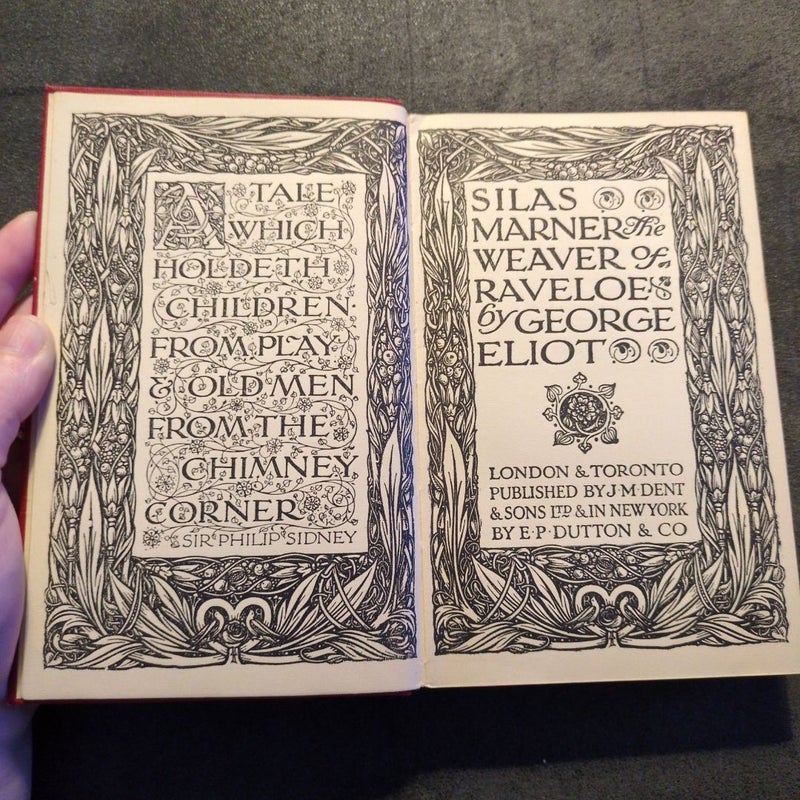 A TALE
WHICH
HOLDETH
CHILDREN
FROM PLAY
& OLD MEN
FROM THE
CHIMNEY
CORNER
SIR PHILIP SIDNEY
SILAS
MARNER The
WEAVER of
RAVELOE
by GEORGE
ELIOT
LONDON & TORONTO
PUBLISHED BY J·M·DENT
& SONS LTD & IN NEW YORK
BY E·P·DUTTON & CO